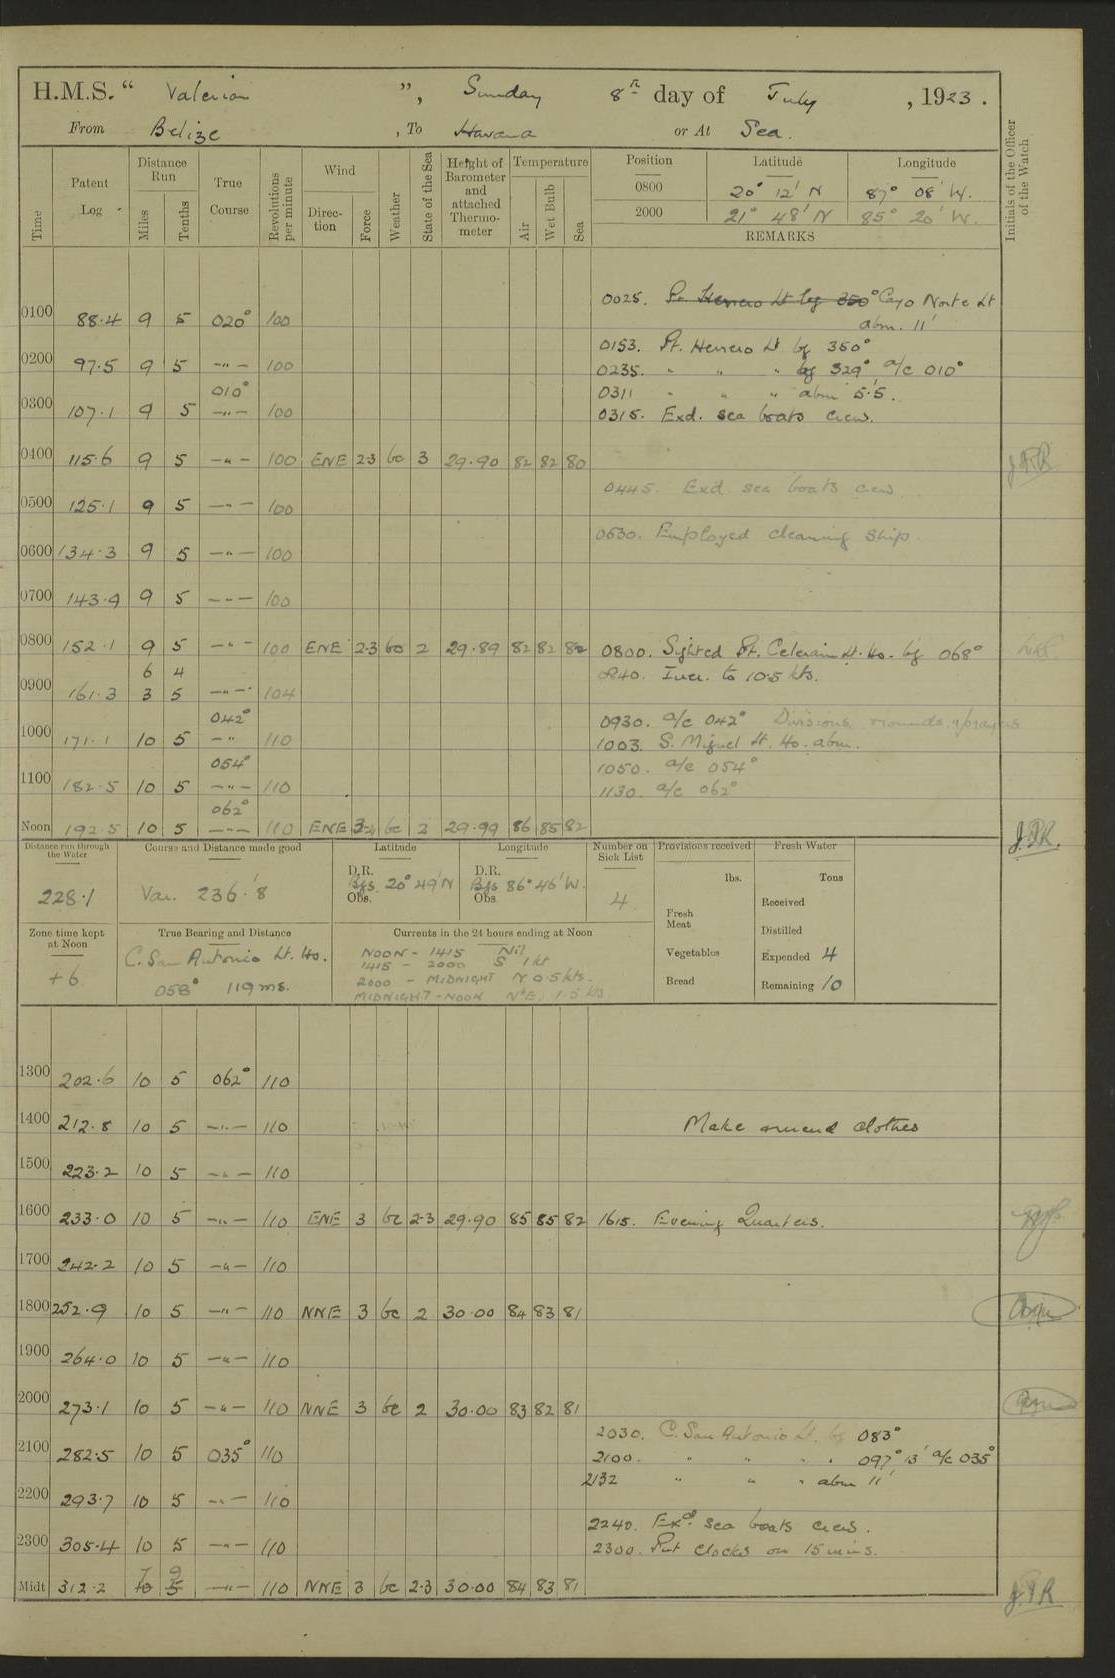 H.M.S. “ Valerian ”, Sunday 8th day of July, 1923.
From Belize, To Havana or At Sea.
Time Patent Log Distance Run Miles Tenths True Course Revolutions per minute Wind Direction Force Weather State of the Sea Height of Barometer and attached Thermometer Temperature Air Wet Bulb Sea Position Latitude Longitude Initials of the Officer of the Watch
0800 20° 12' N 87° 08' W.
2000 21° 48' N 85° 20' W.
REMARKS
0025. Pt. Herrero Lt bg 350° Cayo Norte Lt
abm. 11'
0100 88.4 9 5 020° 100
0153. Pt. Herrero Lt bg 350°
0200 97.5 9 5 —"— 100 0235. " " " bg 329° a/c 010°
010° 0311 " " " abm 5.5'.
0300 107.1 9 5 —"— 100 0315. Exd. sea boats crew.
0400 115.6 9 5 —"— 100 ENE 2.3 bc 3 29.90 82 82 80
0445. Exd. sea boats crew.
0500 125.1 9 5 —"— 100
0530. Employed cleaning ship.
0600 134.3 9 5 —"— 100
0700 143.9 9 5 —"— 100
0800 152.1 9 5 —"— 100 ENE 2.3 bc 2 29.89 82 82 82 0800. Sighted Pt. Celerain Lt. Ho. bg 068°
6 4 0840. Incr. to 10.5 kts.
0900 161.3 3 5 —"— 104
042° 0930. a/c 042° Divisions, rounds & prayers
1000 171.1 10 5 —"— 110 1003. S. Miguel Lt. Ho. abm.
054° 1050. a/c 054°
1100 182.5 10 5 —"— 110 1130. a/c 062°
062°
Noon 192.5 10 5 —"— 110 ENE 3-4 bc 2 29.99 86 85 82 J.P.R.
Distance run through the Water Course and Distance made good Latitude Longitude Number on Sick List Provisions received Fresh Water
228.1 Var. 236.'8 D.R. Obs. 20° 49' N D.R. Obs. 86° 46' W. 4
lbs. Tons
Fresh Meat Received
Distilled
Vegetables Expended 4
Bread Remaining 10
Zone time kept at Noon True Bearing and Distance Currents in the 24 hours ending at Noon
+6 C. San Antonio Lt. Ho. 058° 119 ms.
NOON - 1415 Nil
1415 - 2000 S 1 kt
2000 - MIDNIGHT N 0.5 kts.
MIDNIGHT - NOON N'E. 1.5 kts
1300 202.6 10 5 062° 110
1400 212.8 10 5 —"— 110 Make & mend clothes
1500 223.2 10 5 —"— 110
1600 233.0 10 5 —"— 110 ENE 3 bc 2.3 29.90 85 85 82 1615. Evening Quarters.
1700 242.2 10 5 —"— 110
1800 252.9 10 5 —"— 110 NNE 3 bc 2 30.00 84 83 81
1900 264.0 10 5 —"— 110
2000 273.1 10 5 —"— 110 NNE 3 bc 2 30.00 83 82 81
2030. C. San Antonio Lt. bg 083°
2100 282.5 10 5 035° 110 2100. " " " " 097° 13' a/c 035°
2132 " " " abm 11'
2200 293.7 10 5 —"— 110
2240. Exd. sea boats crews.
2300 305.4 10 5 —"— 110 2300. Put clocks on 15 mins.
7 9
Midt 312.2 10 5 —"— 110 NNE 3 bc 2.3 30.00 84 83 81 J.P.R